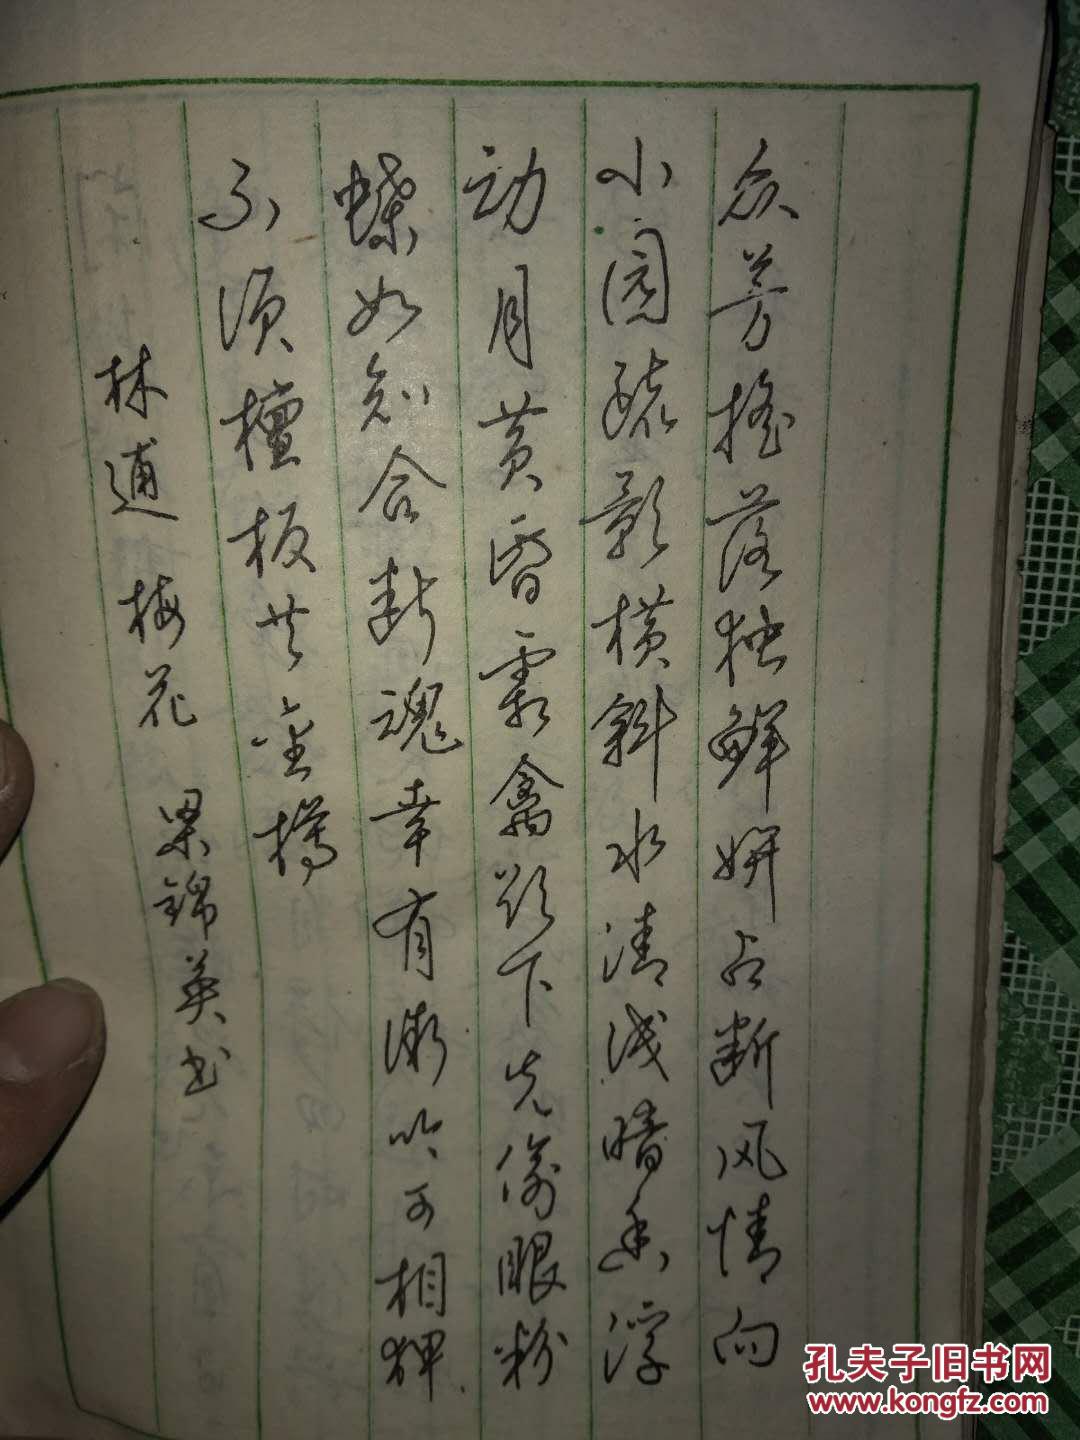 众芳摇落独鲜妍占断风情向
小园疏影横斜水清浅暗香浮
动月黄昏霜禽欲下先偷眼粉
蝶如知合断魂幸有微吟可相狎
不须檀板共金樽
林逋 梅花 梁锦英书
孔夫子旧书网
www.kongfz.com